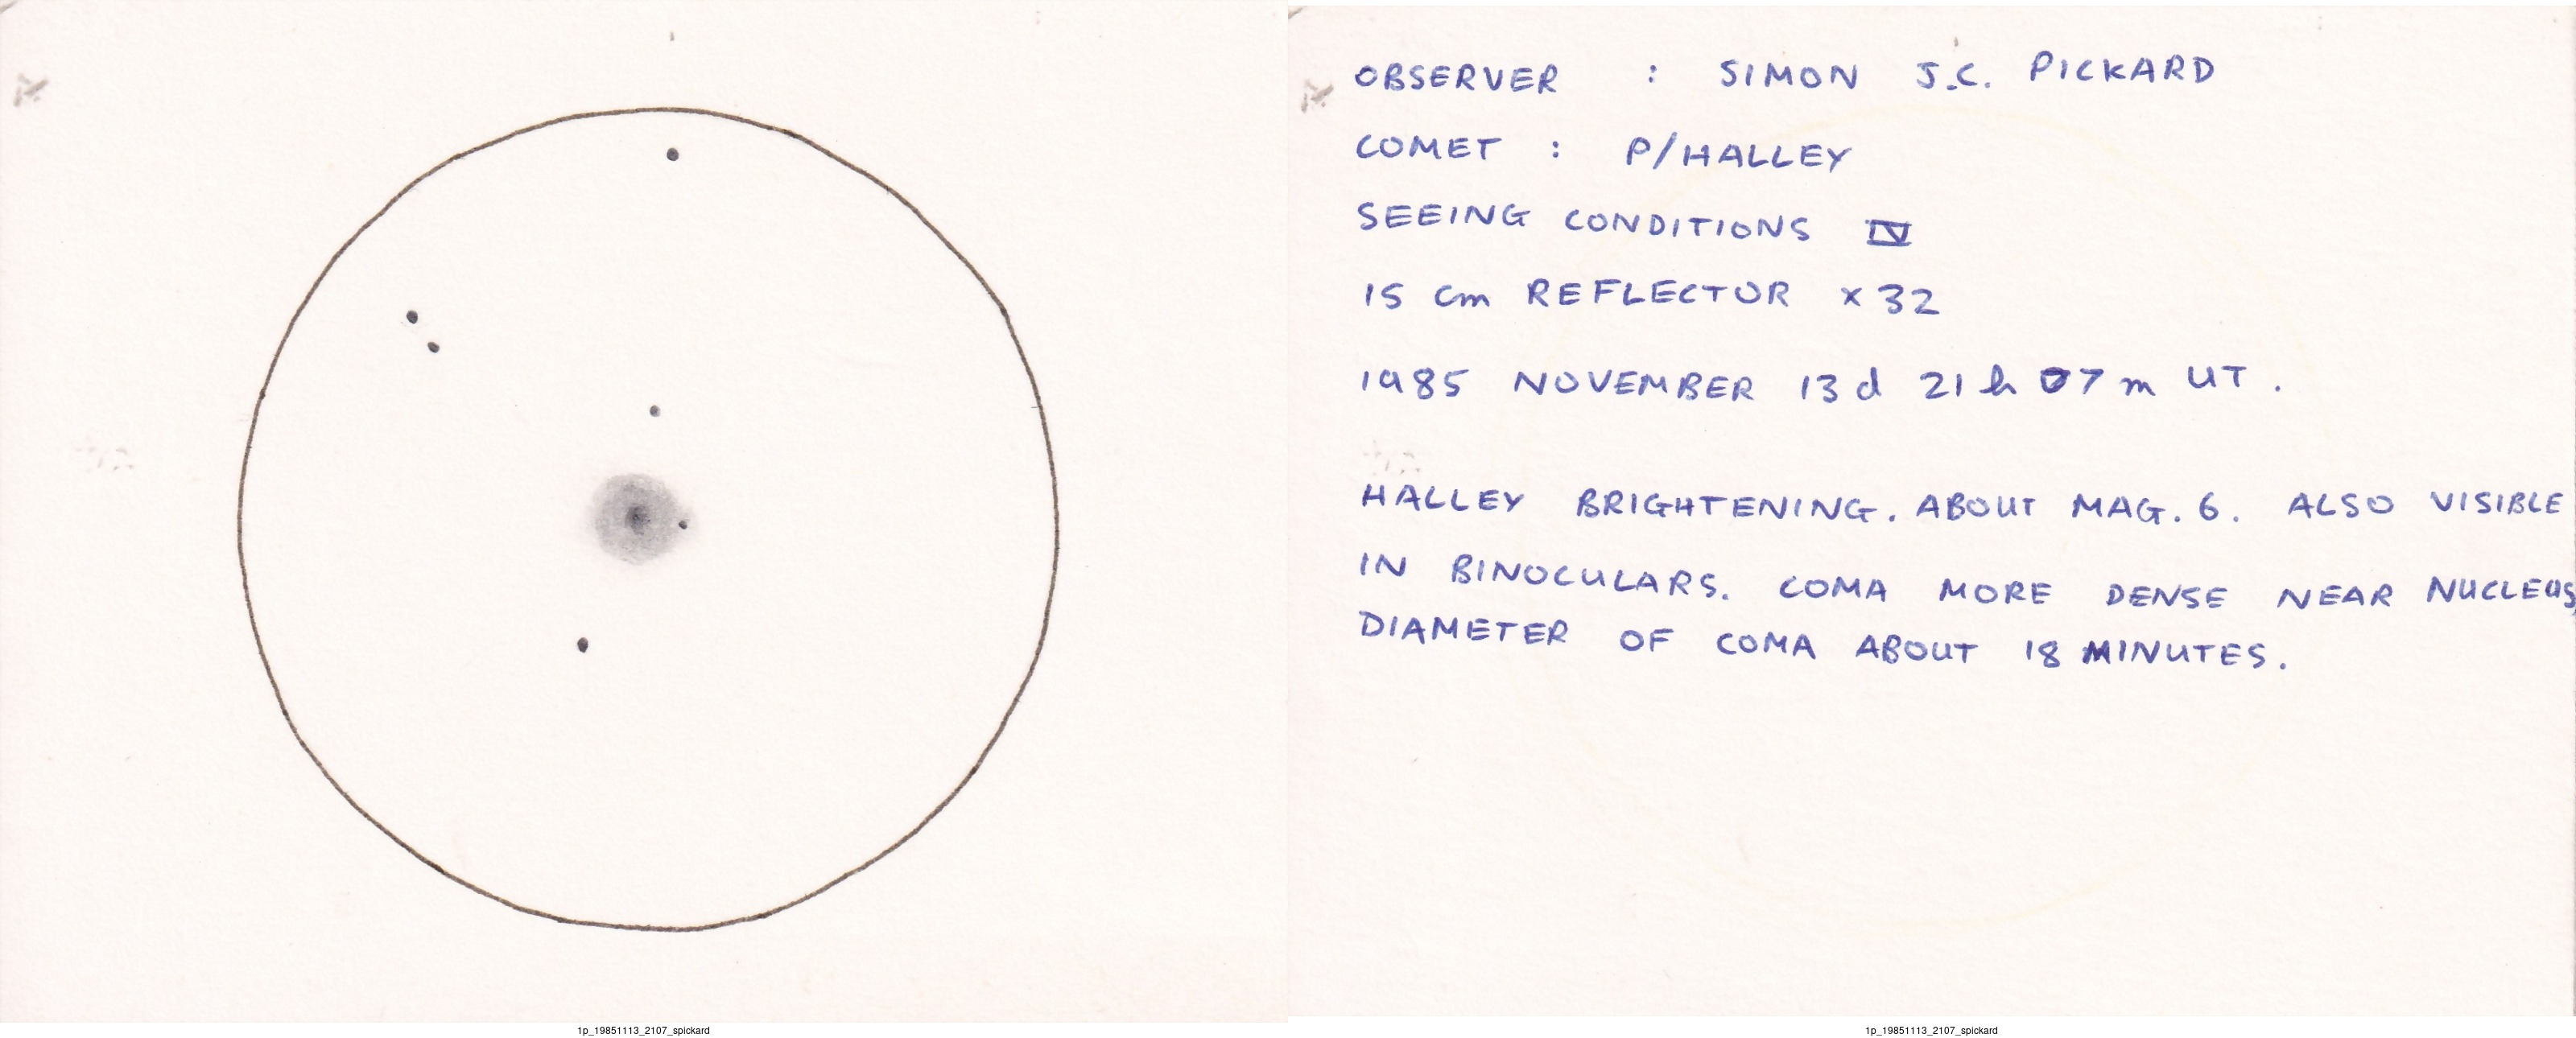 OBSERVER : SIMON J.C. PICKARD
COMET : P/HALLEY
SEEING CONDITIONS IV
15 cm REFLECTOR x 32
1985 NOVEMBER 13 d 21 h 07 m UT.
HALLEY BRIGHTENING. ABOUT MAG. 6. ALSO VISIBLE
IN BINOCULARS. COMA MORE DENSE NEAR NUCLEUS
DIAMETER OF COMA ABOUT 18 MINUTES.
1p_19851113_2107_spickard
1p_19851113_2107_spickard